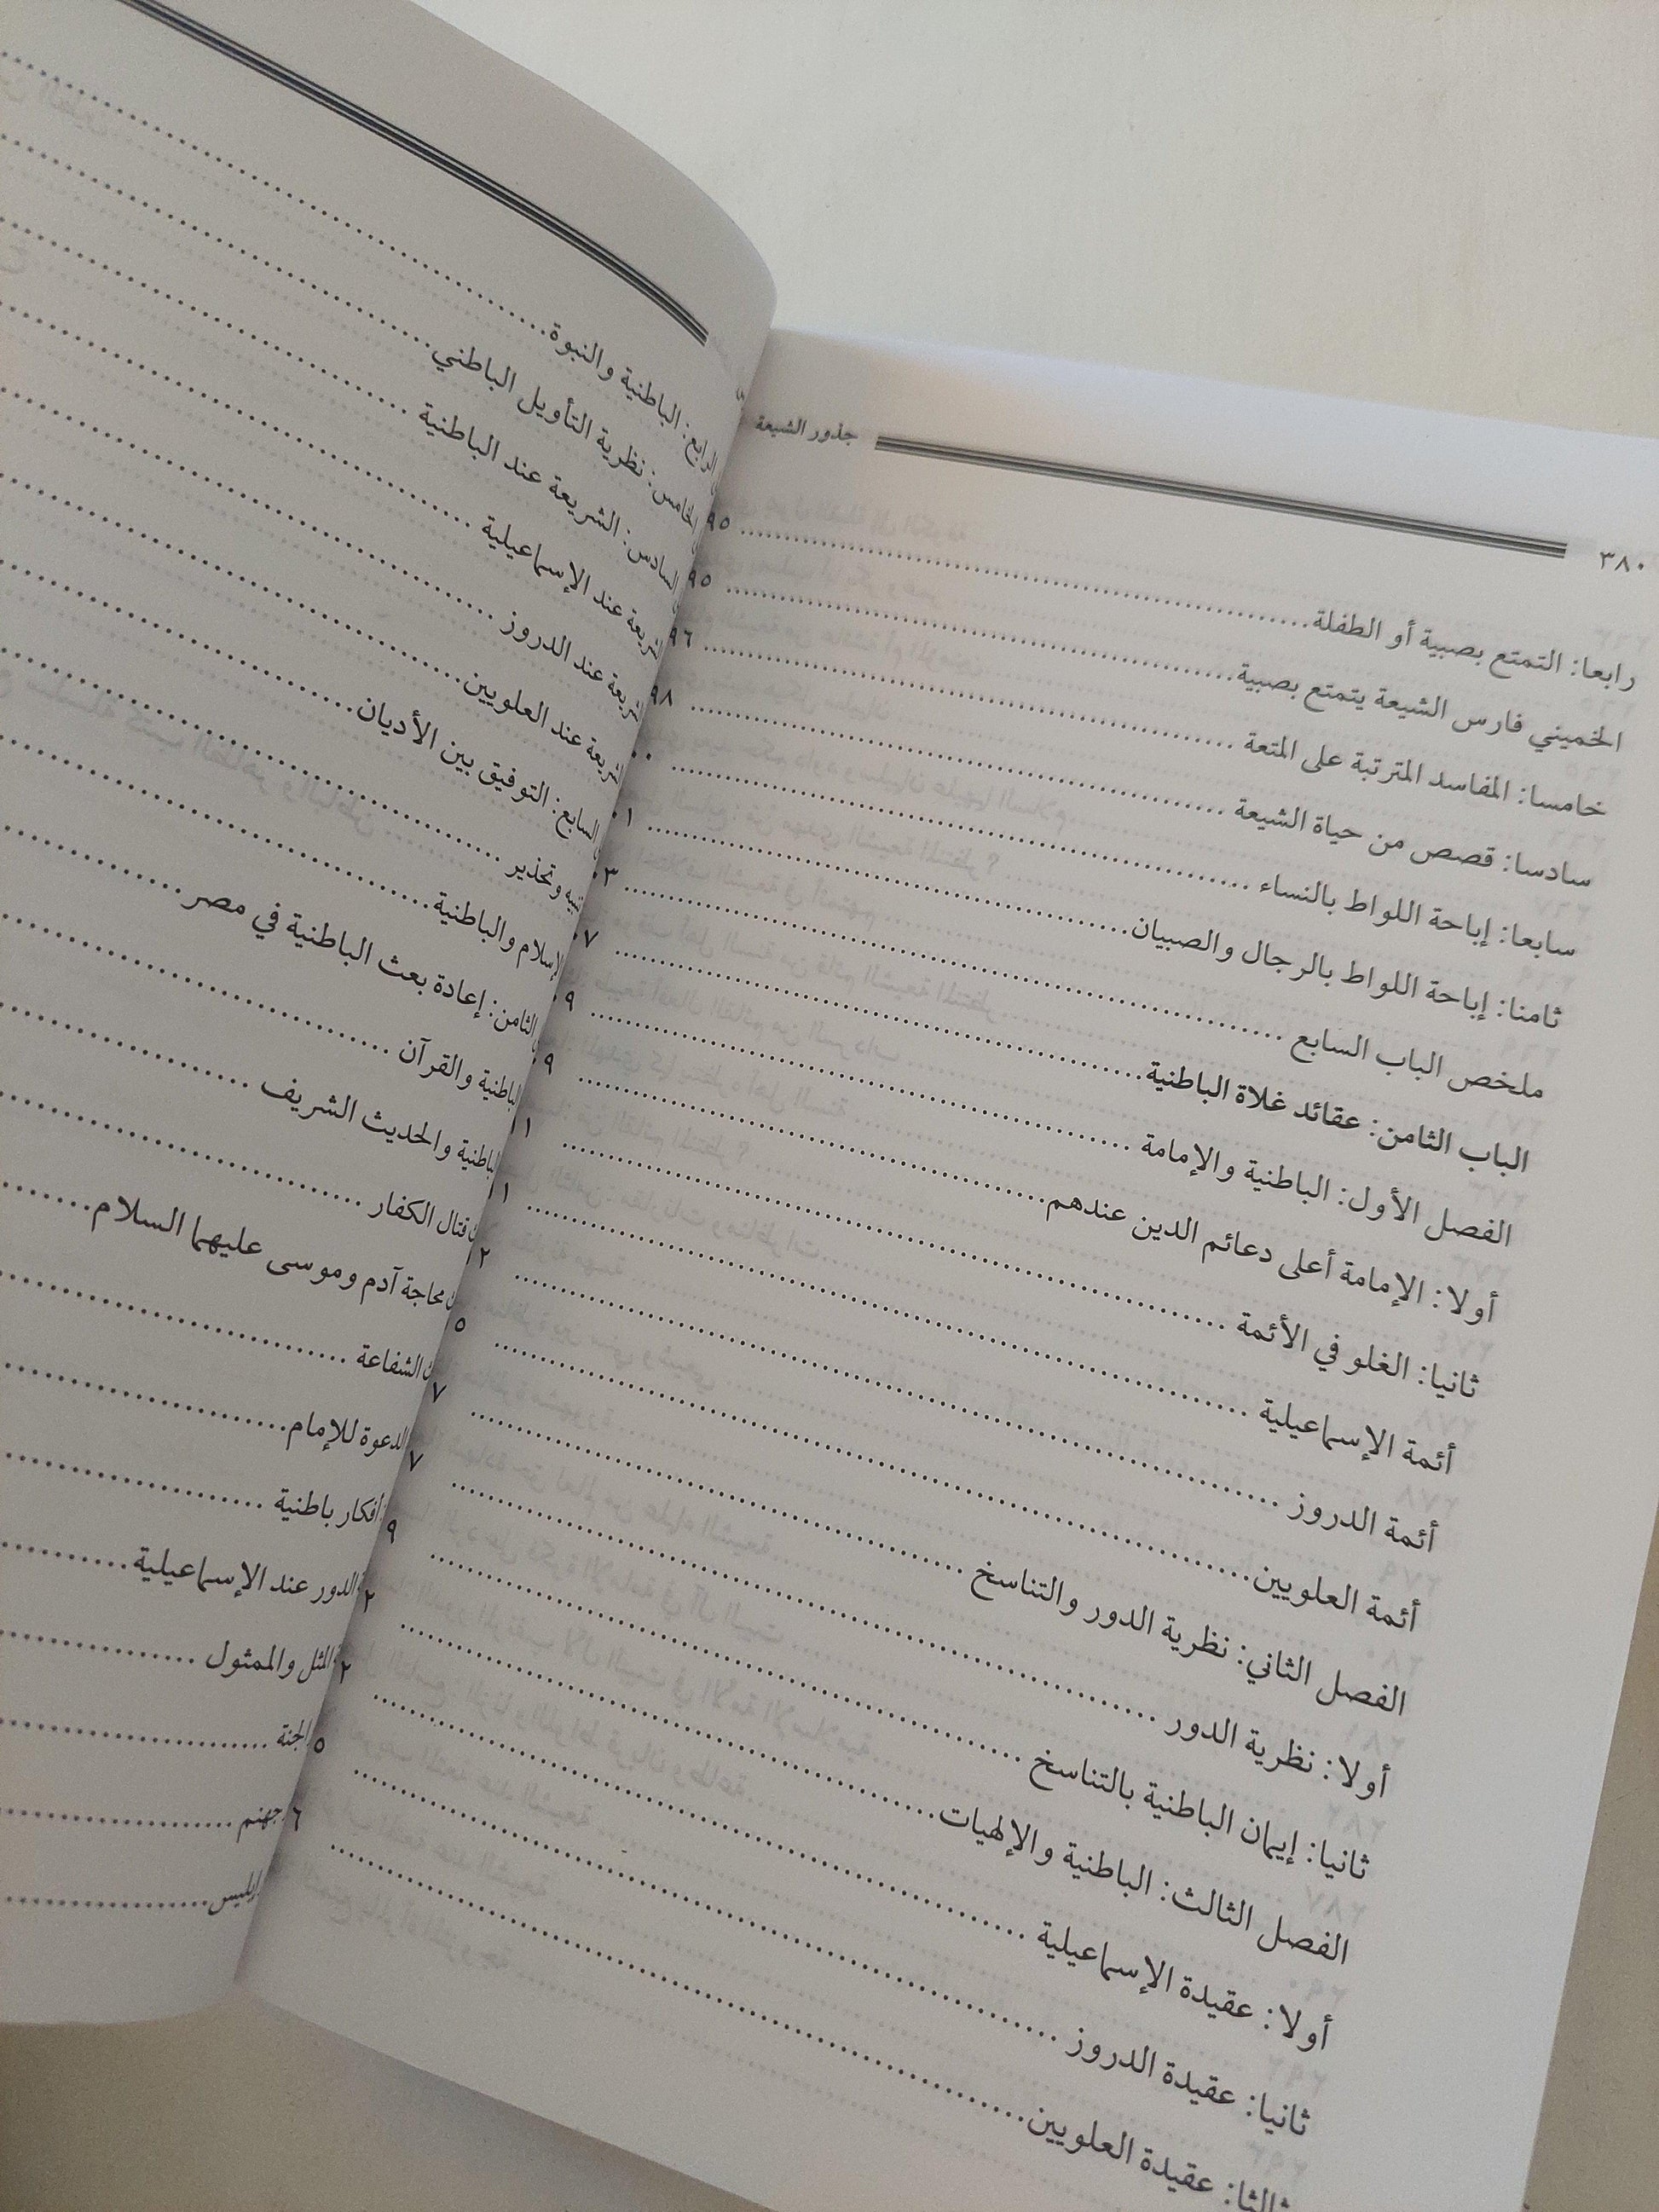 ٣٨٠
جذور الشيعة
رابعا: التمتع بصبية أو الطفلة ٩٥
الخميني فارس الشيعة يتمتع بصبية ٩٥
خامسا: المفاسد المترتبة على المتعة ٩٦
سادسا: قصص من حياة الشيعة ٩٨
سابعا: إباحة اللواط بالنساء
ثامنا: إباحة اللواط بالرجال والصبيان
ملخص الباب السابع
الباب الثامن: عقائد غلاة الباطنية
الفصل الأول: الباطنية والإمامة
أولا: الإمامة أعلى دعائم الدين عندهم
ثانيا: الغلو في الأئمة
أئمة الإسماعيلية
أئمة الدروز
أئمة العلويين
الفصل الثاني: نظرية الدور والتناسخ
أولا: نظرية الدور
ثانيا: إيمان الباطنية بالتناسخ
الفصل الثالث: الباطنية والإلهيات
أولا: عقيدة الإسماعيلية
ثانيا: عقيدة الدروز
ثالثا: عقيدة العلويين
الرابع: الباطنية والنبوة
الخامس: نظرية التأويل الباطني
السادس: الشريعة عند الباطنية
عند الإسماعيلية
عند الدروز
عند العلويين
السابع: التوفيق بين الأديان
وتحذير
والباطنية
الثامن: إعادة بعث الباطنية في مصر
الباطنية والقرآن
الباطنية والحديث الشريف
قتال الكفار
محاجة آدم وموسى عليهما السلام
الشفاعة
الدعوة للإمام
أفكار باطنية
الدور عند الإسماعيلية
المثل والممثول
الجنة
جهنم
إبليس